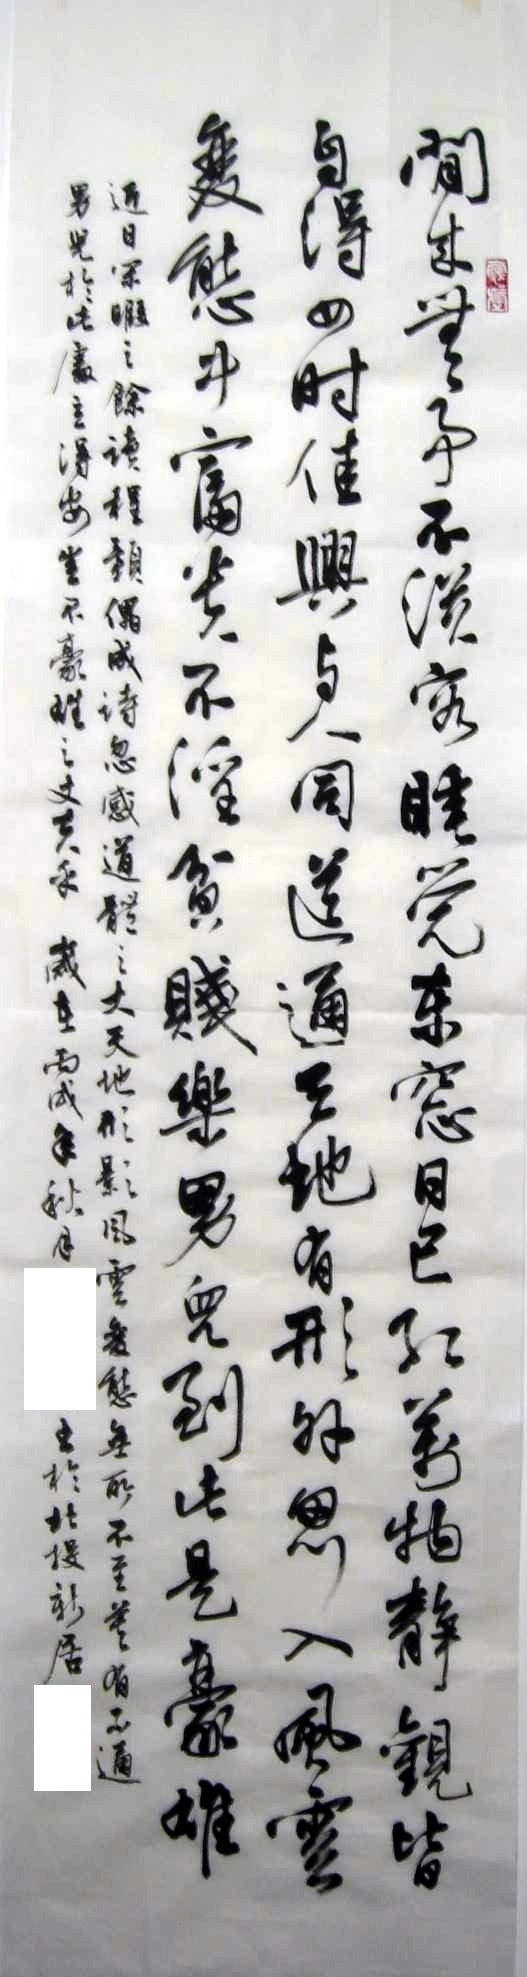 閒來無事不從容睡覺東窓日已紅萬物靜觀皆
自得四时佳興与人同道通天地有形外思入風雲
變態中富貴不淫貧賤樂男兒到此是豪雄
近日閑暇之餘讀程顥偶成诗忽感道體之大天地形影風雲變態無所不至莫有不通
男兒於此處立得安豈不豪雄之丈夫乎 歲在丙戌年秋月 書於北新居